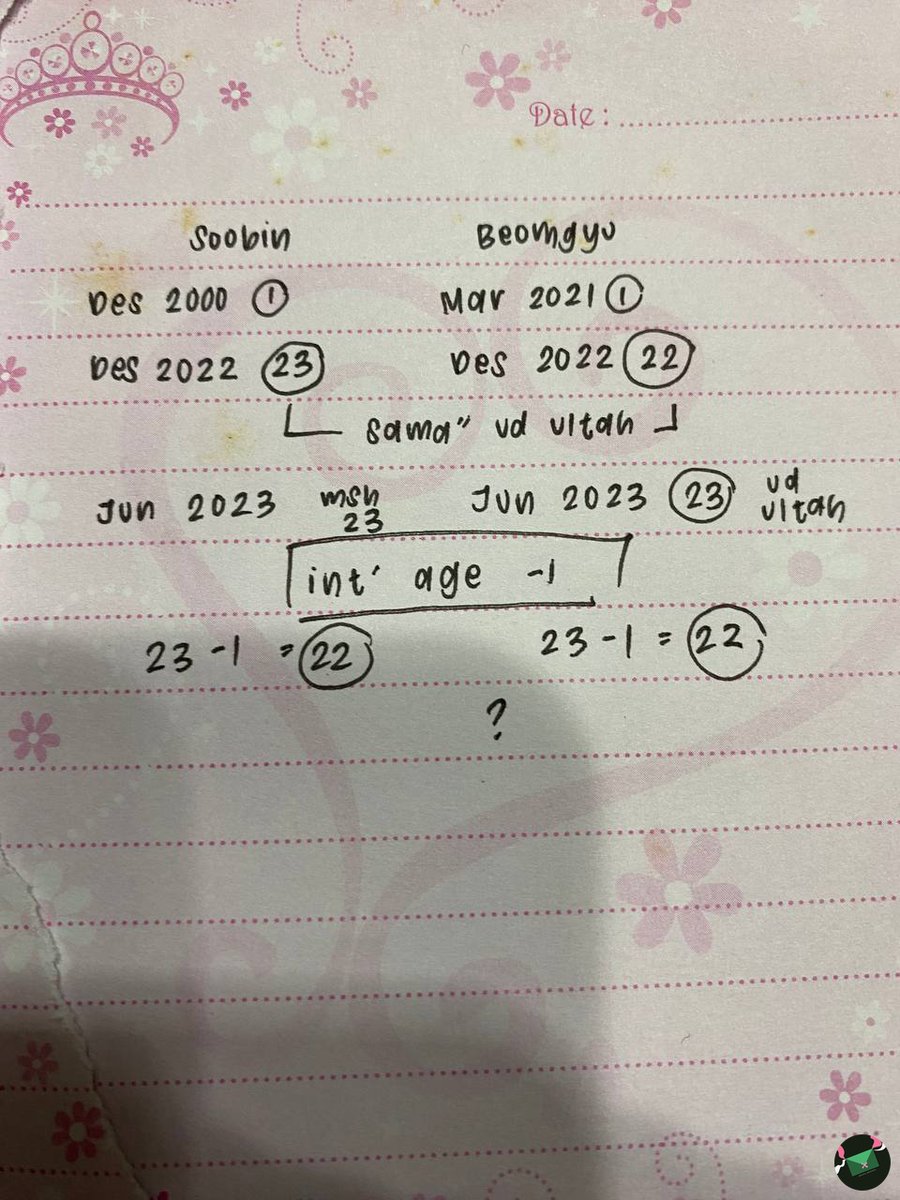 Date :
Soobin Beomgyu
Des 2000 ① Mar 2021 ①
Des 2022 23 Des 2022 22
sama" ud ultah
Jun 2023 msh 23 Jun 2023 23 ud ultah
int' age -1
23 -1 = 22 23 -1 = 22
?